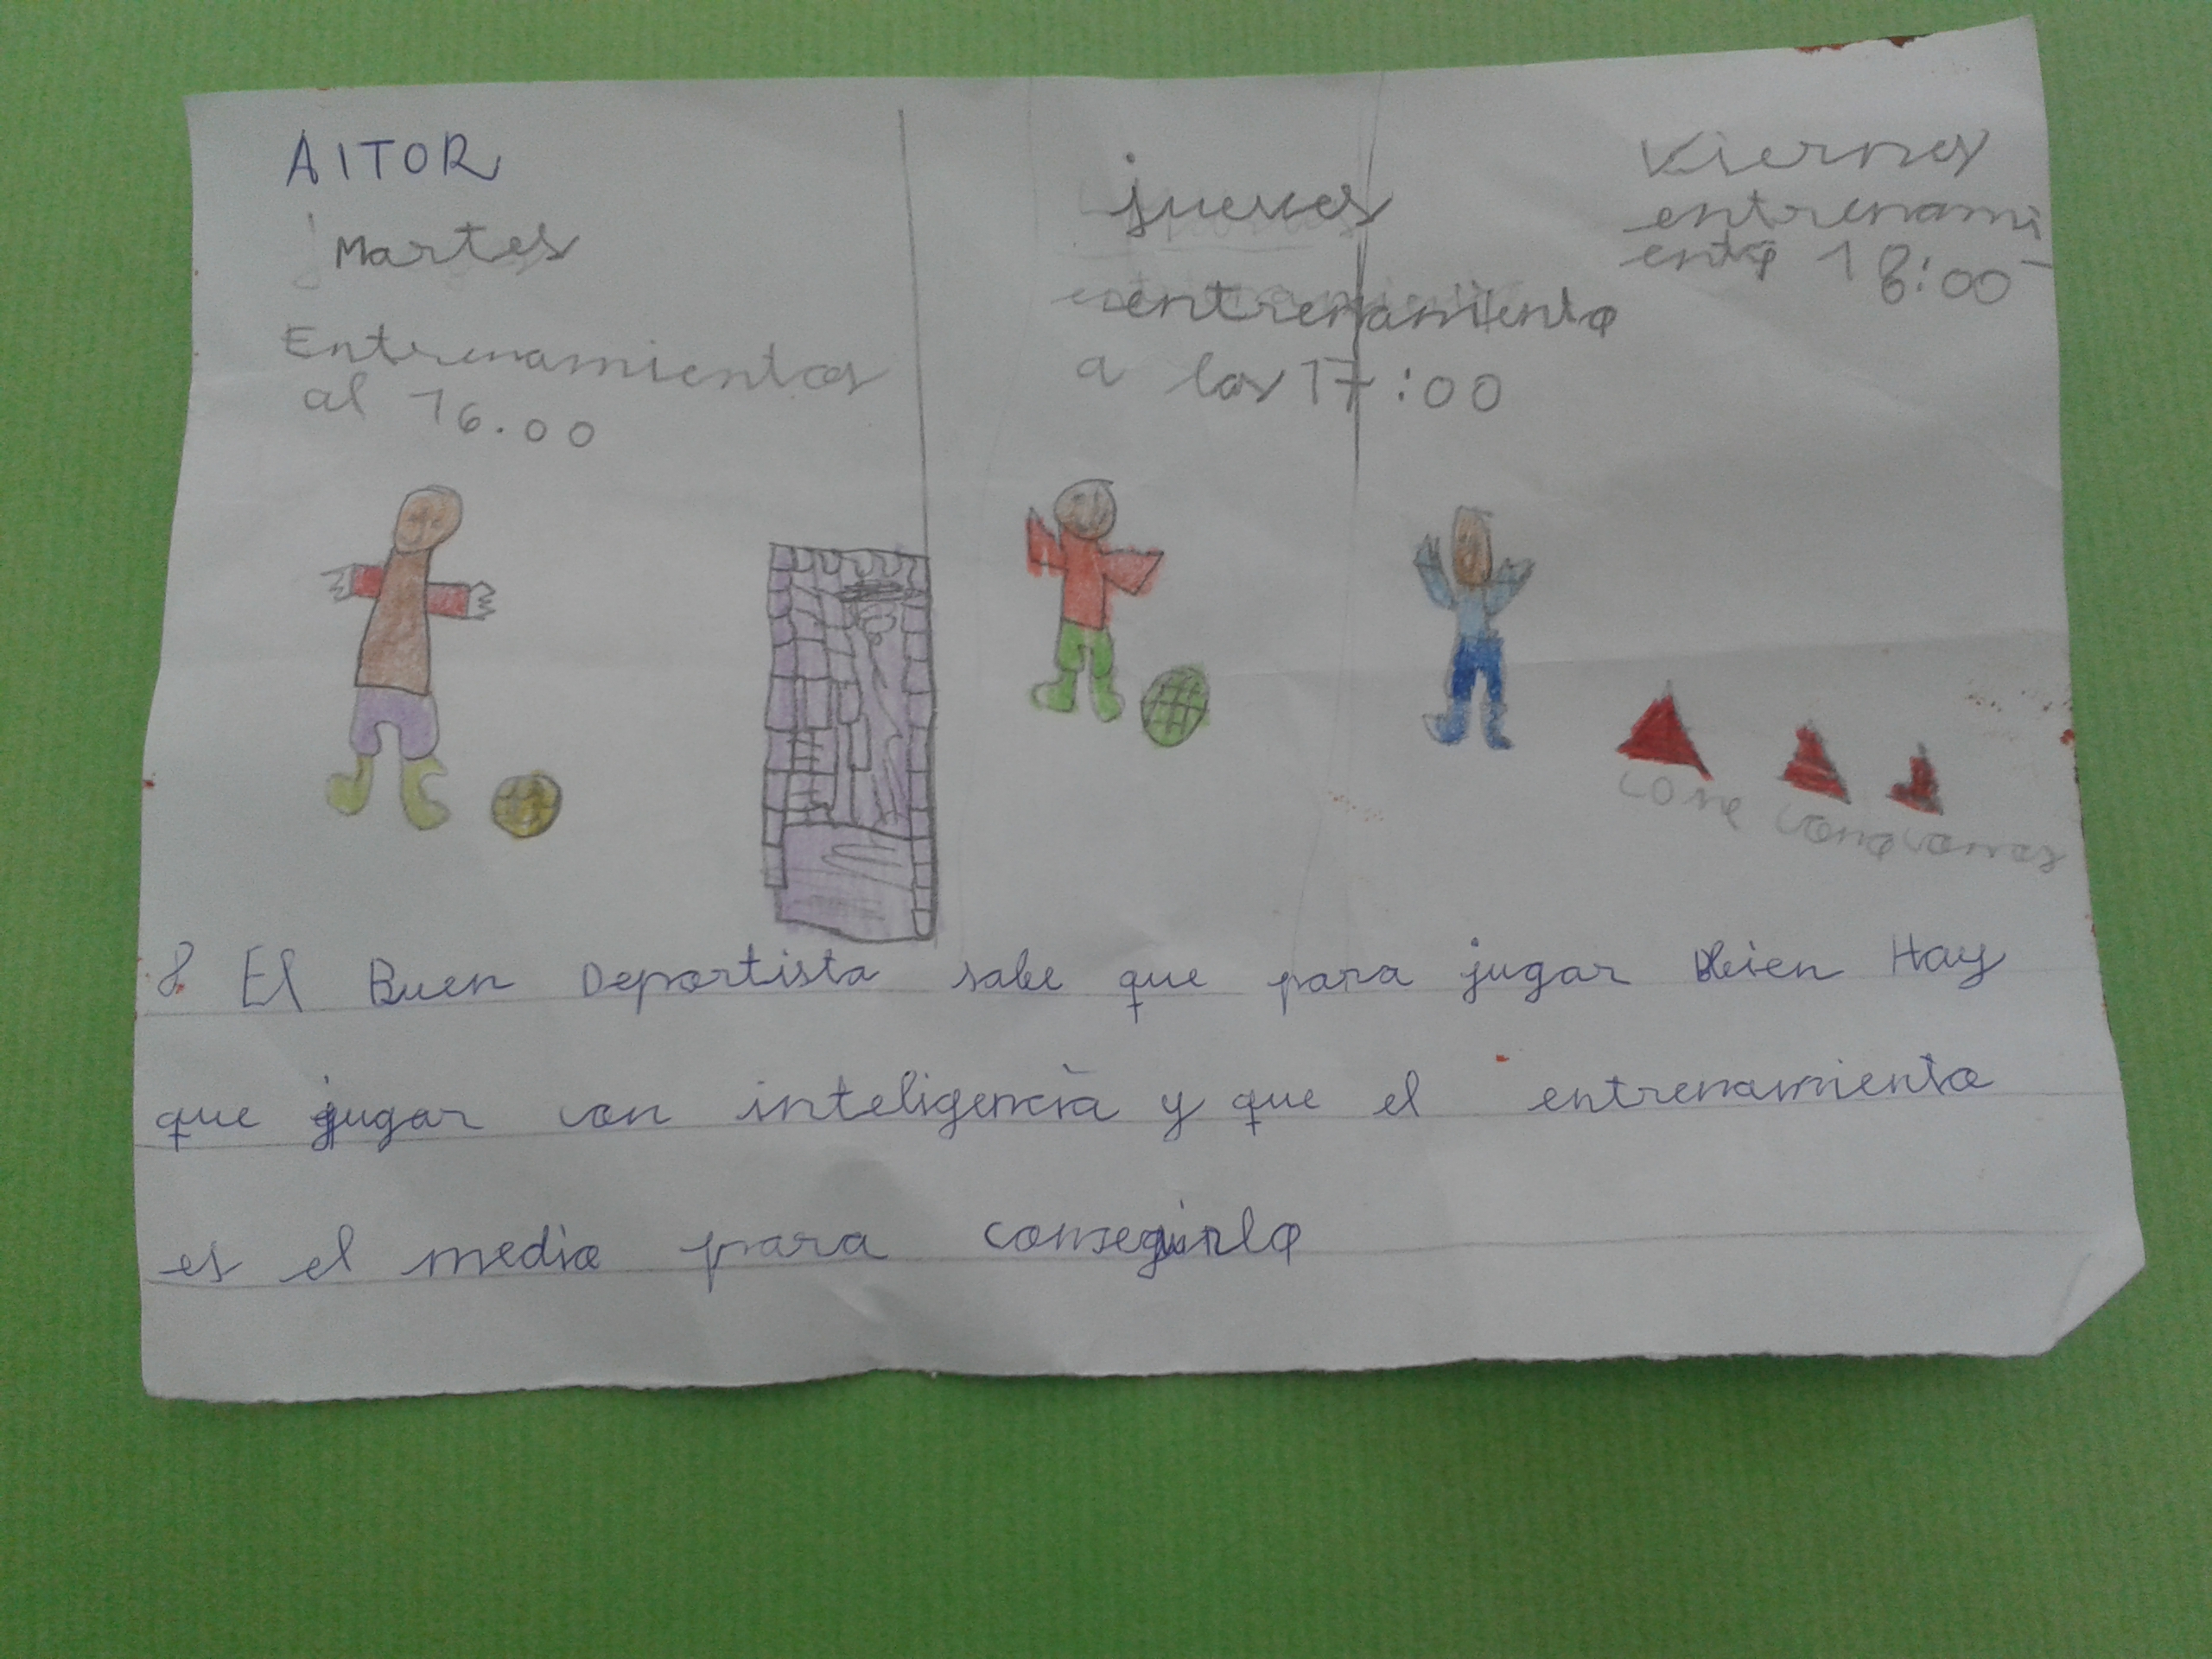 AITOR
Martes
Entrenamientos
al 16.00
jueves
entrenamiento
a las 17:00
Viernes
entrenami
ento 18:00
cono cono conos
8. El Buen Deportista sabe que para jugar bien Hay
que jugar con inteligencia y que el entrenamiento
es el medio para conseguirlo